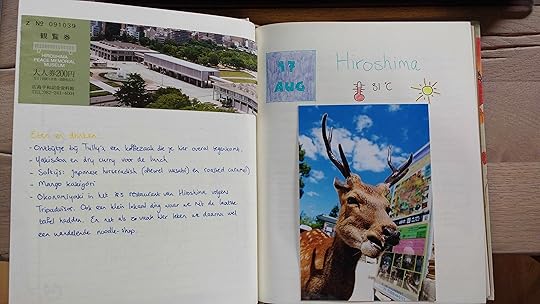 Z No 091039
観覧券
HIROSHIMA
PEACE MEMORIAL
MUSEUM
大人券200円
広島平和記念資料館
TEL 082-241-4004
Eten en drinken:
- Ontbijtje bij Tully's, een koffiezaak die je hier overal tegenkomt.
- Yakisoba en dry curry voor de lunch
- Softijs: japanese horseradish (oftewel wasabi) en roasted caramel
- Mango kakigori
- Okonomiyaki in het #3 restaurant van Hiroshima volgens
Tripadvisor. Ook een klein lokaal ding waar we net de laatste
tafel hadden. En net als zo vaak hier leken we daarna wel
een wandelende noodle-shop.
17
AUG
Hiroshima
31°C